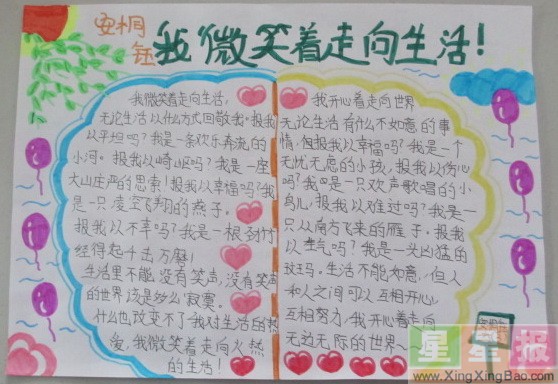 安桐
钰
我微笑着走向生活!
我微笑着走向生活,
无论生活以什么方式回敬我。报我
以平坦吗?我是一条欢乐奔流的
小河。报我以崎岖吗?我是一座
大山庄严的思索!报我以幸福吗?我
是一只凌空飞翔的燕子。
报我以不幸吗?我是一根劲竹
经得起千击万磨!
生活里不能没有笑声,没有笑声
的世界该是多么寂寞。
什么也改变不了我对生活的热
爱,我微笑着走向火热
的生活!
我开心着走向世界
无论生活有什么不如意的事
情,但报我以幸福吗?我是一个
无忧无虑的小孩,报我以伤心
吗?我是一只欢声歌唱的小
鸟儿,报我以难过吗?我是一
只从南方飞来的雁子。报我
以
气吗?我是一头凶猛的
生活不能如意,但人
和人之间可以互相开心,
互相努力,我开心着走向
无边无际的世界~
星星报
www.XingXingBao.com